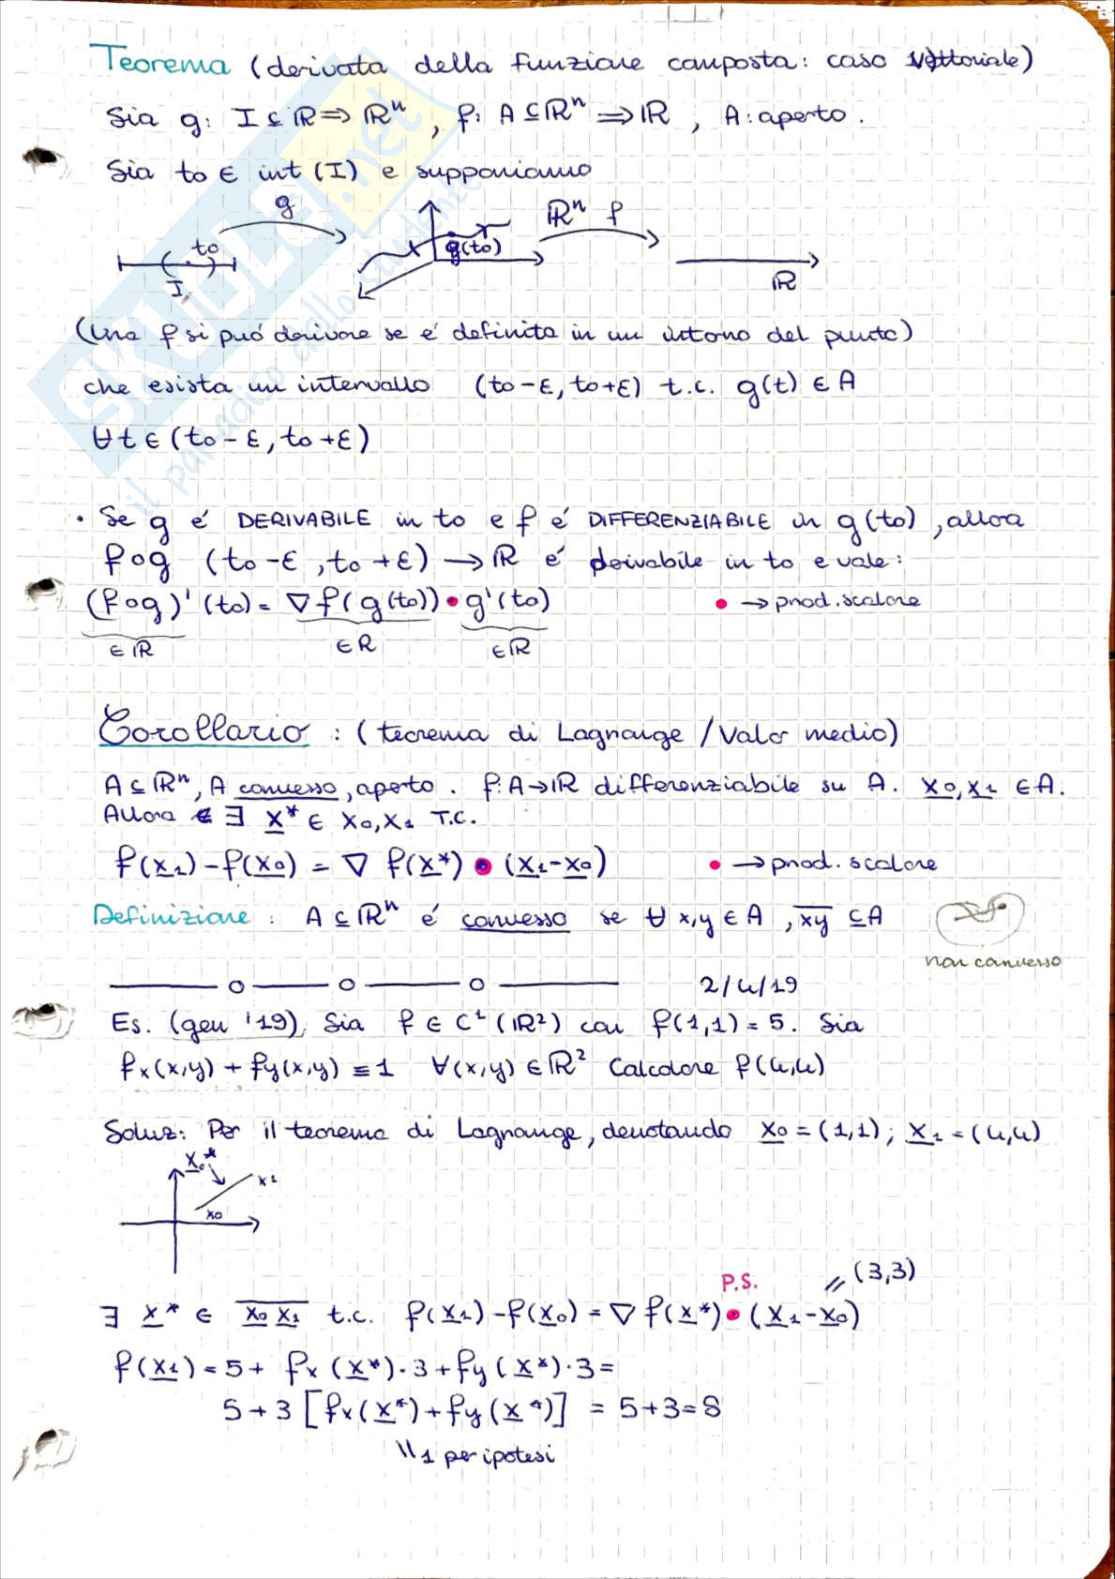 Teorema (derivata della funzione composta: caso vettoriale)
Sia g: I ⊆ ℝ ⇒ ℝⁿ, f: A ⊆ ℝⁿ ⇒ ℝ, A: aperto.
Sia to ∈ int (I) e supponiamo
g
ℝⁿ f
to
g(to)
I
ℝ
(una f si può derivare se é definita in un intorno del punto)
che esista un intervallo (to-ε, to+ε) t.c. g(t) ∈ A
∀t ∈ (to-ε, to+ε)
• Se g é DERIVABILE in to e f é DIFFERENZIABILE in g(to), allora
fog (to-ε, to+ε) → ℝ é derivabile in to e vale:
(fog)'(to) = ∇f(g(to)) • g'(to) • → prod. scalare
∈ ℝ ∈ R ∈ ℝ
Corollario : (teorema di Lagrange / Valor medio)
A ⊆ ℝⁿ, A convesso, aperto. f: A→ℝ differenziabile su A. x0, x1 ∈ A.
Allora ∃ x* ∈ x0, x1 T.C.
f(x1) - f(x0) = ∇ f(x*) • (x1-x0) • → prod. scalare
Definizione : A ⊆ ℝⁿ é convesso se ∀ x,y ∈ A, xy ⊆ A
non convesso
2/4/19
Es. (gen '19) Sia f ∈ C¹(ℝ²) con f(1,1) = 5. Sia
fx(x,y) + fy(x,y) ≡ 1 ∀(x,y) ∈ ℝ² Calcolare f(4,4)
Soluz: Per il teorema di Lagrange, denotando x0 = (1,1); x1 = (4,4)
x*
x1
x0
P.S. // (3,3)
∃ x* ∈ x0 x1 t.c. f(x1) - f(x0) = ∇ f(x*) • (x1-x0)
f(x1) = 5 + fx (x*)·3 + fy (x*)·3 =
5+3 [fx(x*) + fy(x*)] = 5+3=8
\\ 1 per ipotesi
SKUOLA.net